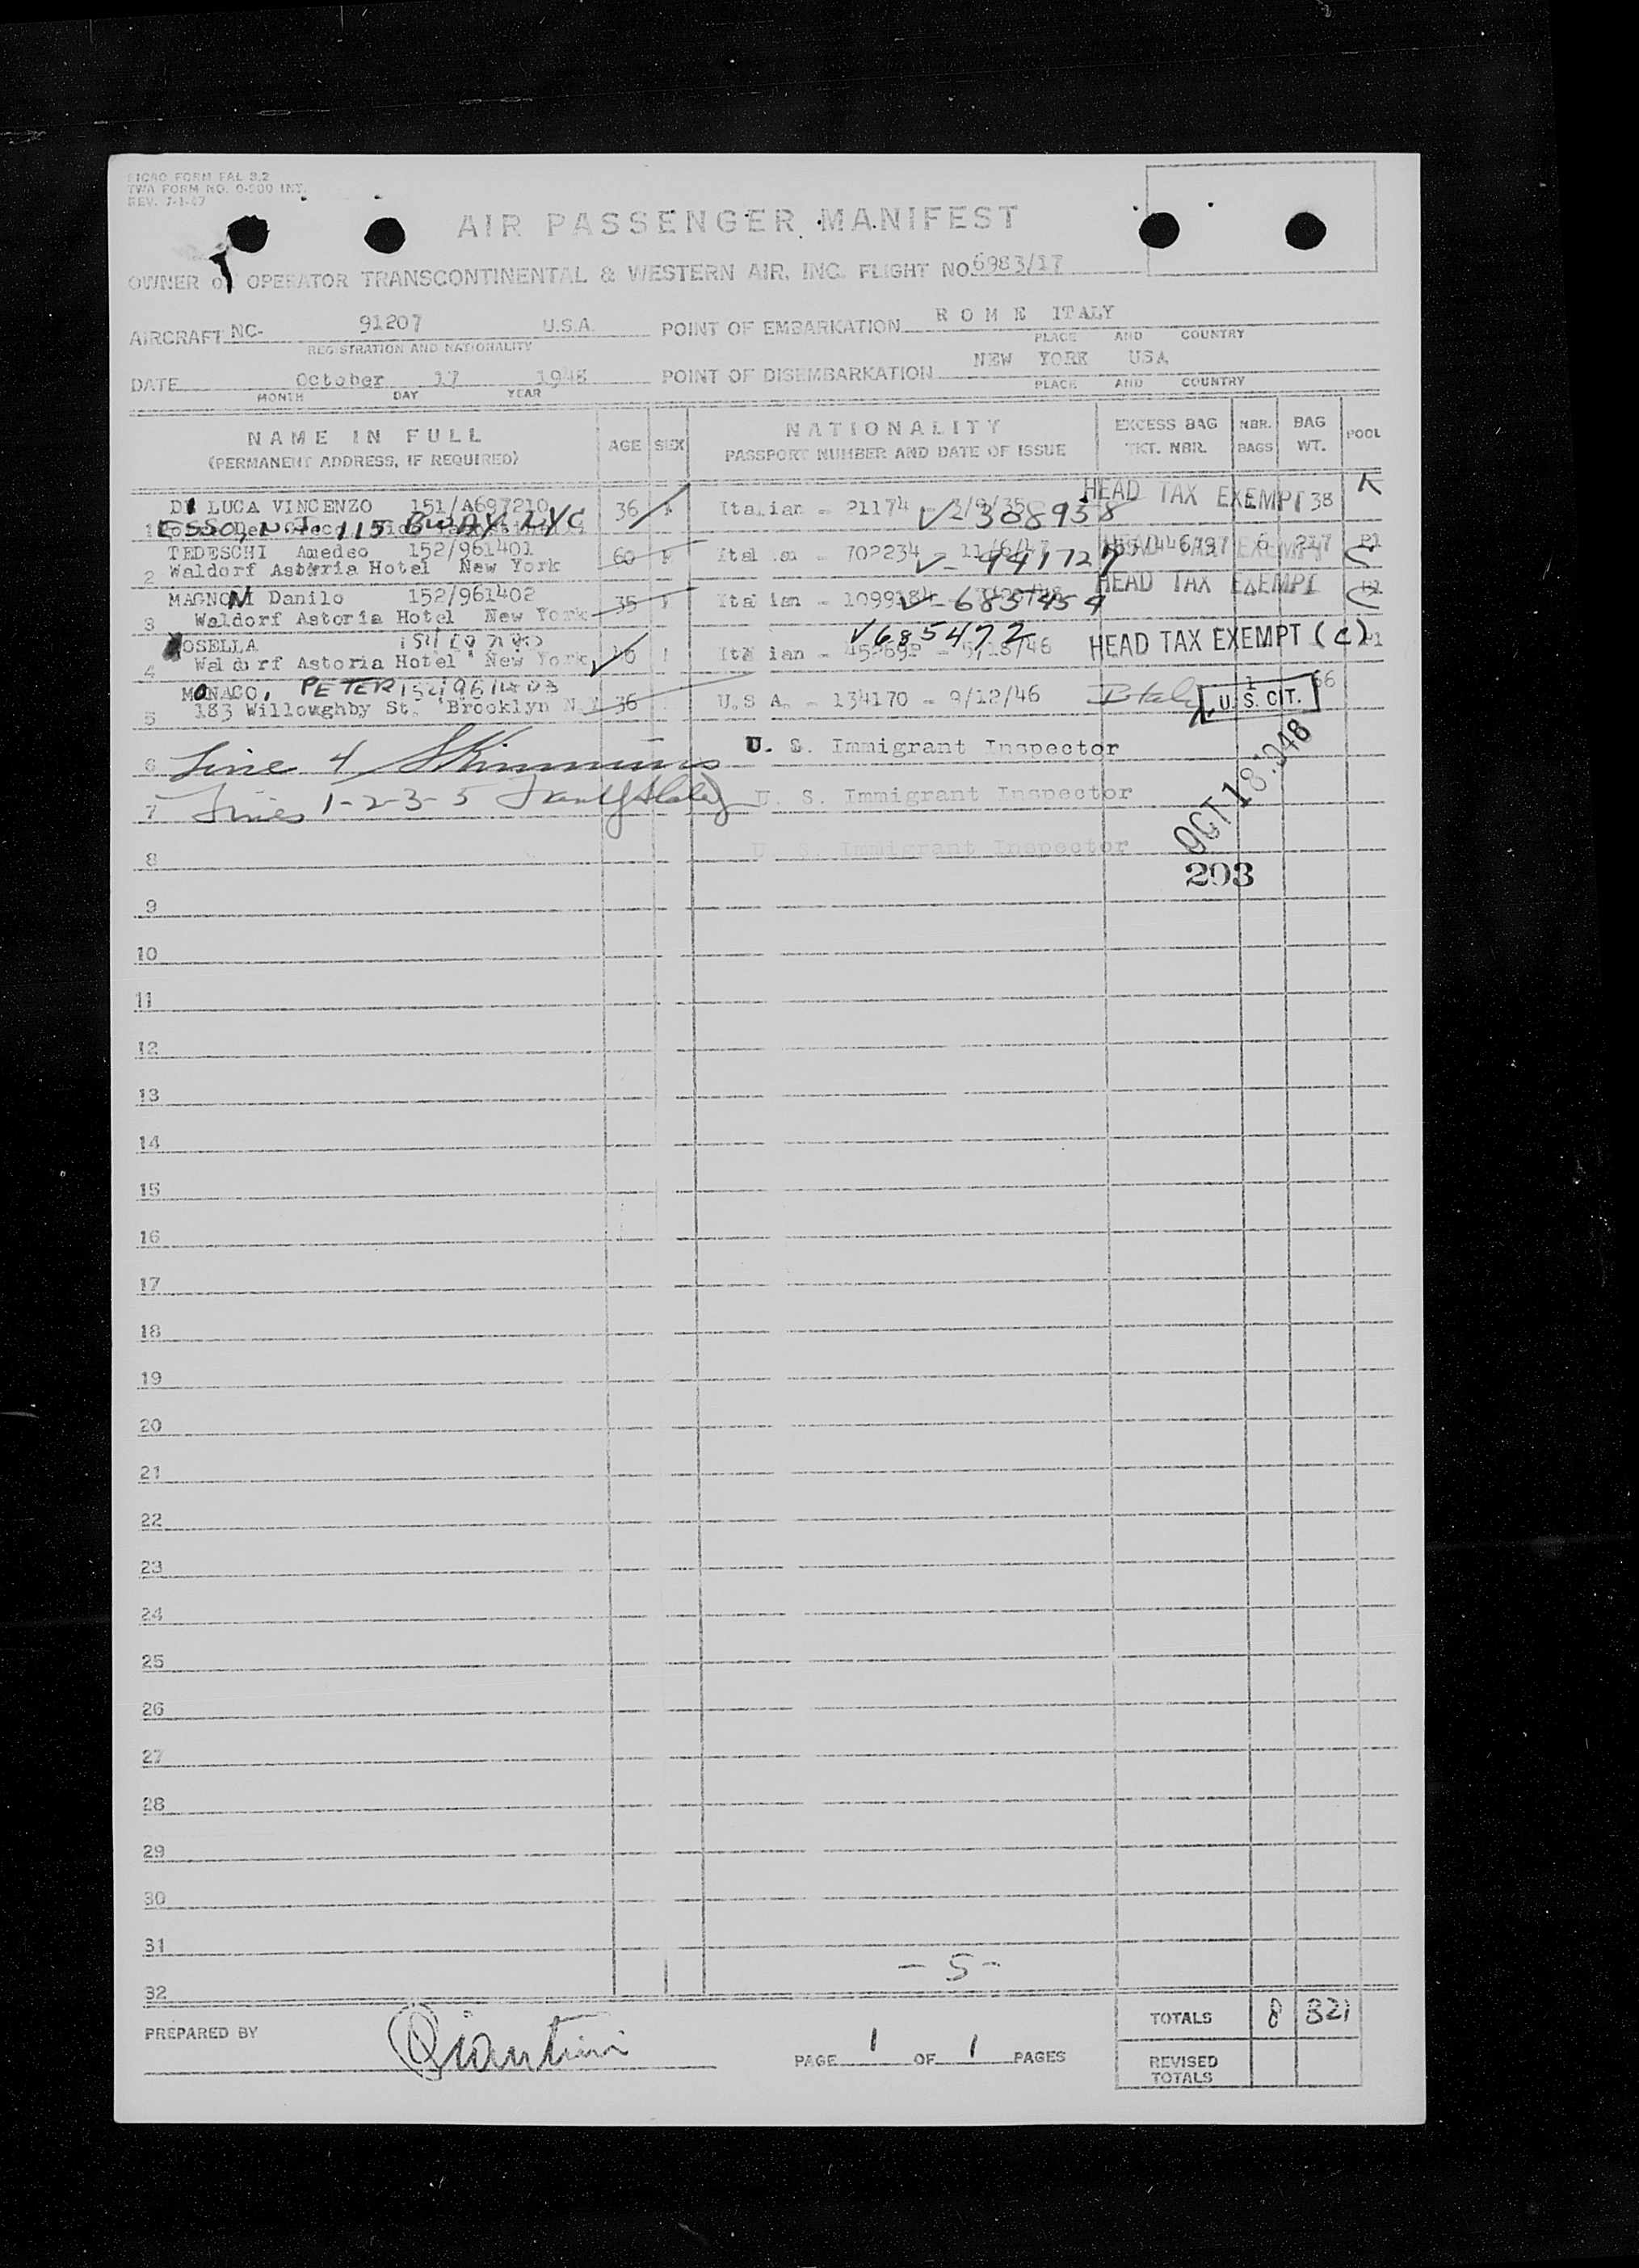 PICAO FORM FAL 3.2
TWA FORM NO. 0-200 INT.
REV. 7-1-47
AIR PASSENGER MANIFEST
OWNER or OPERATOR TRANSCONTINENTAL & WESTERN AIR, INC. FLIGHT NO. 6983/17
AIRCRAFT NC- 91207 U.S.A. POINT OF EMBARKATION R O M E ITALY
REGISTRATION AND NATIONALITY PLACE AND COUNTRY
DATE October 17 1948 POINT OF DISEMBARKATION NEW YORK USA
MONTH DAY YEAR PLACE AND COUNTRY
NAME IN FULL (PERMANENT ADDRESS, IF REQUIRED) AGE SEX NATIONALITY PASSPORT NUMBER AND DATE OF ISSUE EXCESS BAG TKT. NBR. NBR. BAGS BAG WT. POOL
DI LUCA VINCENZO 151/A697210 36 Italian - 21174 2/9/35 HEAD TAX EXEMPT 38
1 ESSO, 115 BWAY. NYC V-2308958
TEDESCHI Amedeo 152/961401 60 Italian - 702234 - 11/6/47 6 217 P1
2 Waldorf Astoria Hotel New York V-941727
MAGNONI Danilo 152/961402 35 Italian - HEAD TAX EXEMPT
3 Waldorf Astoria Hotel New York V-685454
ROSELLA V685472
4 Waldorf Astoria Hotel New York Italian - HEAD TAX EXEMPT (C) P1
MONACO, PETER 152/961403 36 U.S.A. - 134170 - 9/12/46 Italy 1 66
5 183 Willoughby St. Brooklyn N.Y U. S. CIT.
6 Line 4 U. S. Immigrant Inspector
7 Lines 1-2-3-5 U. S. Immigrant Inspector
OCT 18 1948
8 U. S. Immigrant Inspector
203
9
10
11
12
13
14
15
16
17
18
19
20
21
22
23
24
25
26
27
28
29
30
31
- 5 -
32
TOTALS 8 321
PREPARED BY
PAGE 1 OF 1 PAGES
REVISED TOTALS